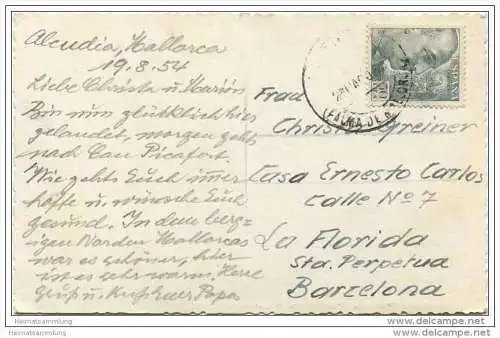 Alcudia, Mallorca
19.8.54
Liebe Christa u. Marion
Bin nun glücklich hier
gelandet, morgen gehts
nach Can Picafort.
Wie gehts Euch
hoffe u. wünsche Euch
gesund. In dem berg-
igen Norden Mallorcas
war es schöner, hier
ist es sehr warm. Herzl
Gruß u. Kuß Euer Papa
Frau
Greiner
Casa Ernesto Carlos
Calle No 7
La Florida
Sta. Perpetua
Barcelona
PALMA DE
ESPAÑA
Heimatsammlung
Heimatsammlung
www.heimatsammlung.de
www.heimatsammlung.de